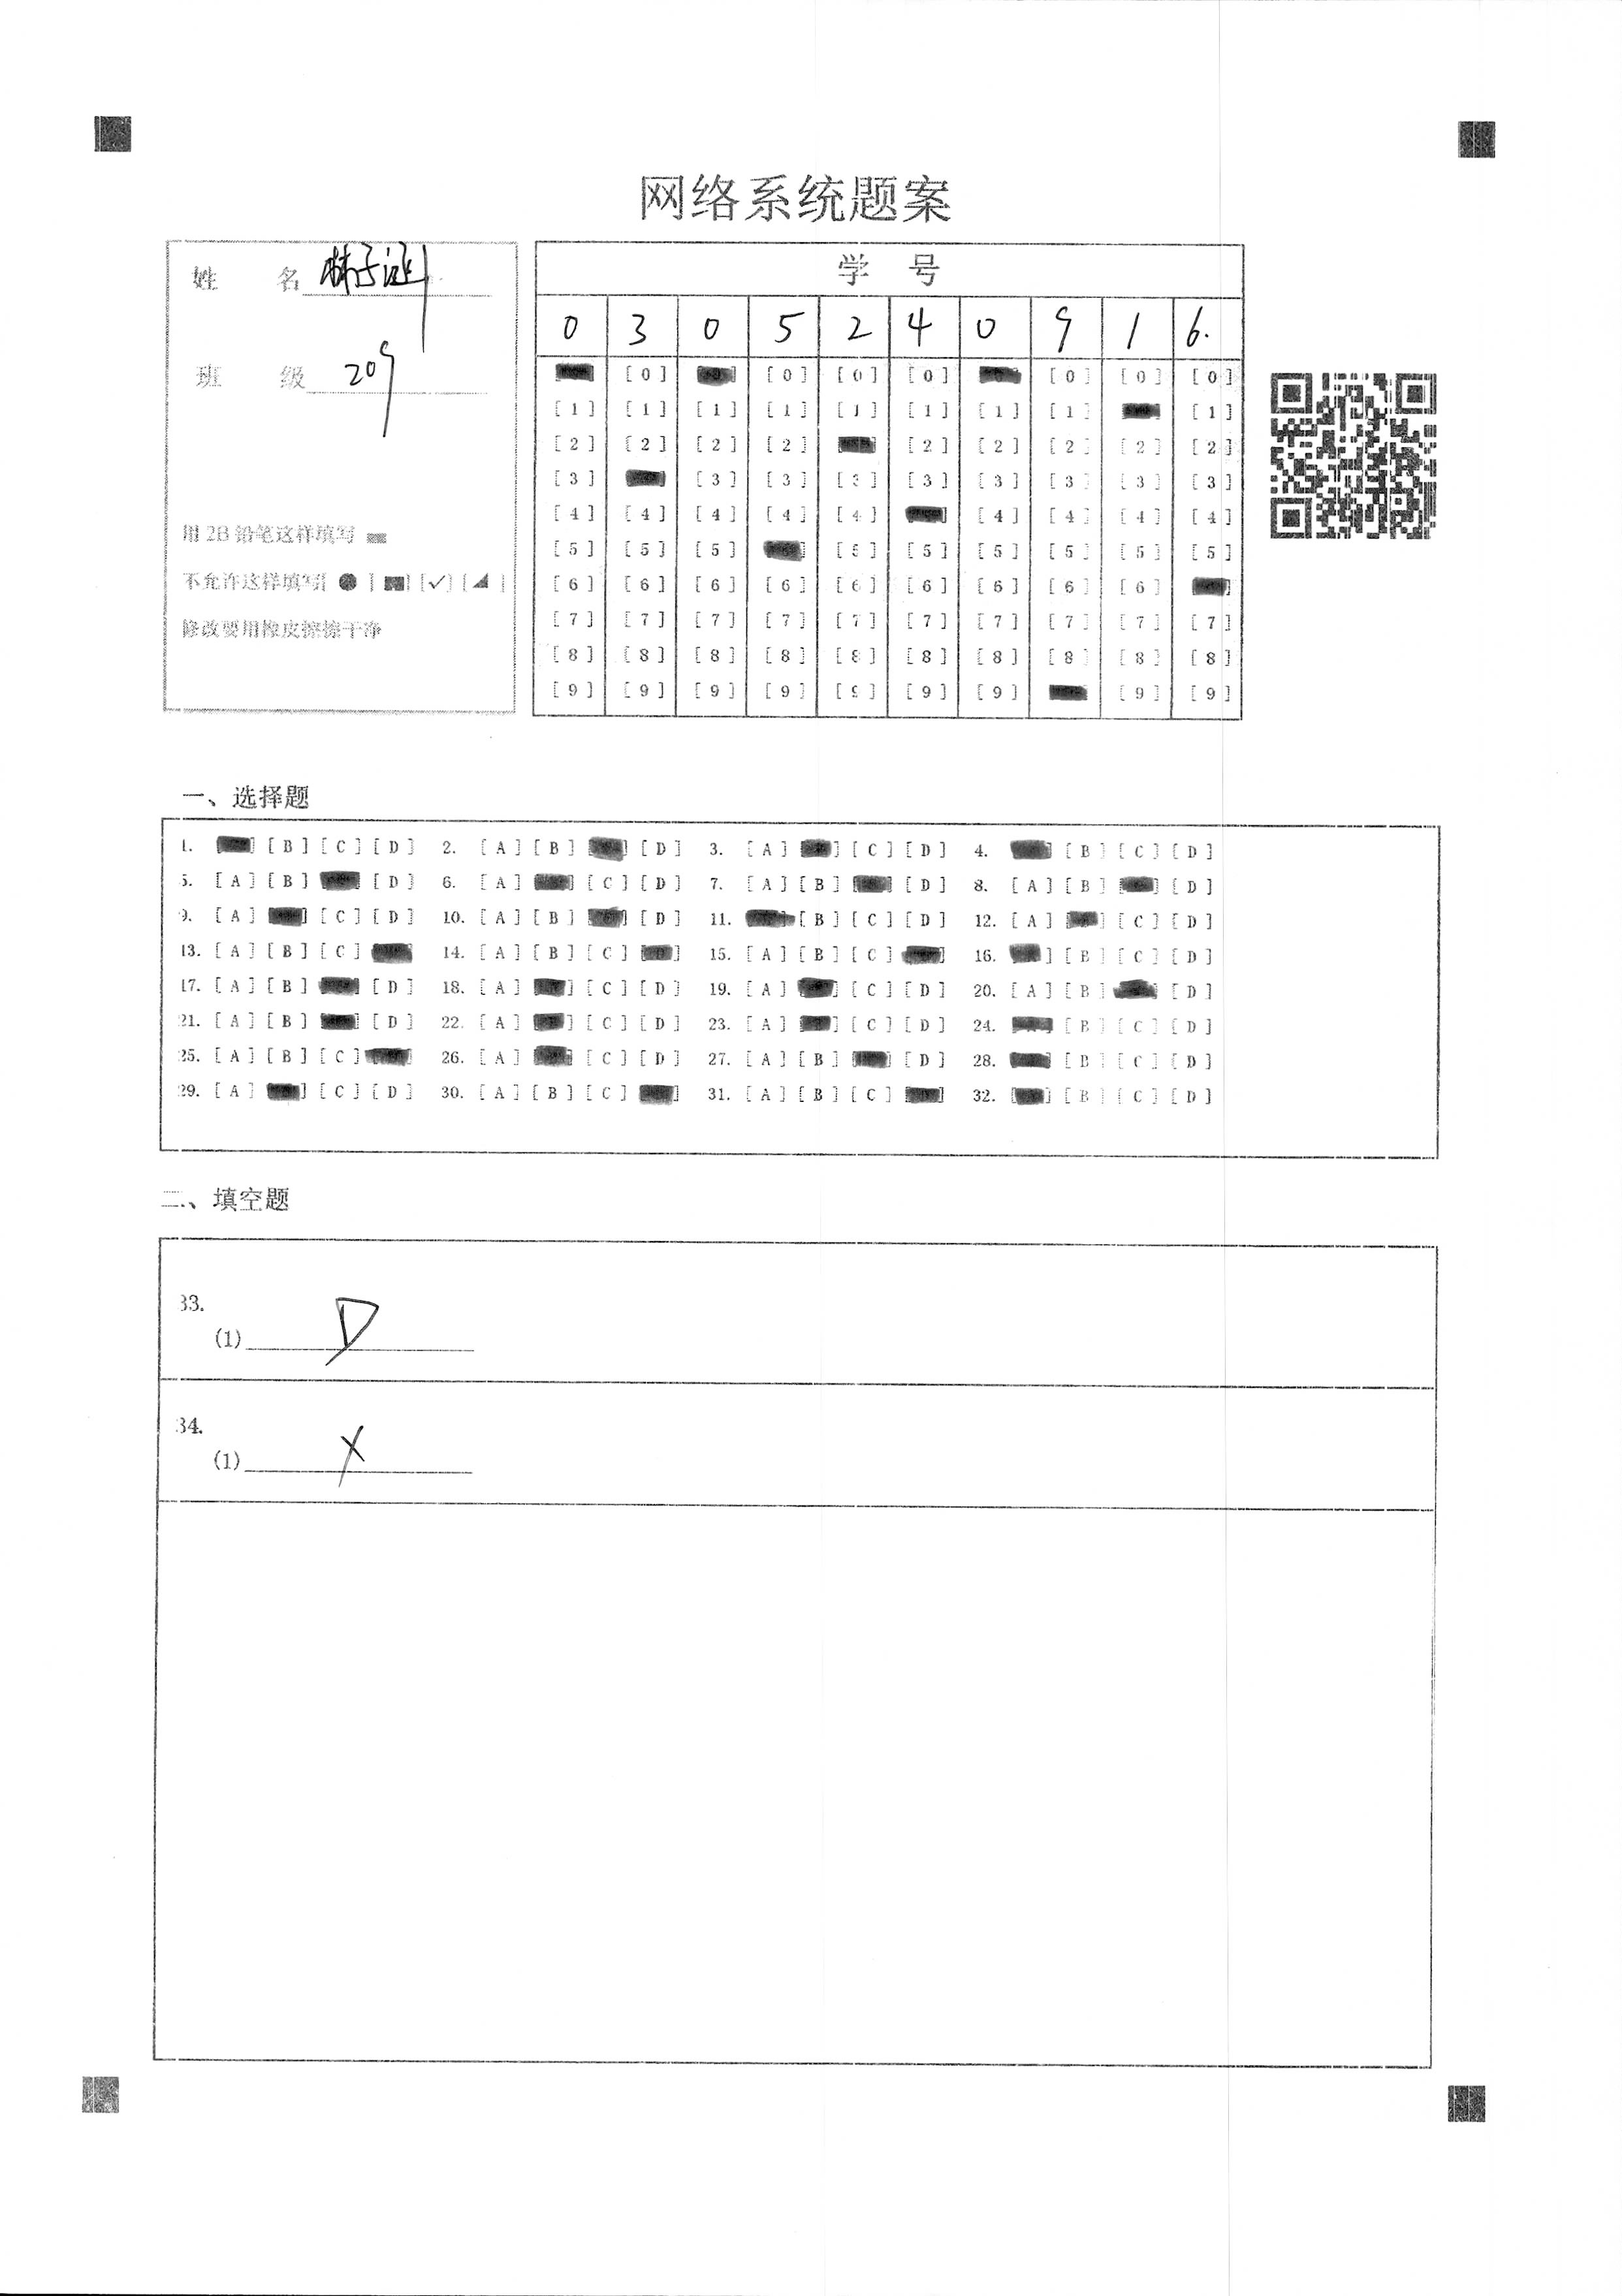 网络系统题案
姓 名 林子涵
班 级 209
用 2B 铅笔这样填写
不允许这样填写[ ● ] [ ] [✓] [ ]
修改要用橡皮擦擦干净
学 号
0 3 0 5 2 4 0 9 1 6.
[0] [0] [0] [0] [0] [0] [0]
[1] [1] [1] [1] [1] [1] [1] [1] [1]
[2] [2] [2] [2] [2] [2] [2] [2] [2]
[3] [3] [3] [3] [3] [3] [3] [3] [3]
[4] [4] [4] [4] [4] [4] [4] [4] [4]
[5] [5] [5] [5] [5] [5] [5] [5] [5]
[6] [6] [6] [6] [6] [6] [6] [6] [6]
[7] [7] [7] [7] [7] [7] [7] [7] [7] [7]
[8] [8] [8] [8] [8] [8] [8] [8] [8] [8]
[9] [9] [9] [9] [9] [9] [9] [9] [9]
一、选择题
1. [B] [C] [D] 2. [A] [B] [D] 3. [A] [C] [D] 4. [B] [C] [D]
5. [A] [B] [D] 6. [A] [C] [D] 7. [A] [B] [D] 8. [A] [B] [D]
9. [A] [C] [D] 10. [A] [B] [D] 11. [B] [C] [D] 12. [A] [C] [D]
13. [A] [B] [C] 14. [A] [B] [C] 15. [A] [B] [C] 16. [B] [C] [D]
17. [A] [B] [D] 18. [A] [C] [D] 19. [A] [C] [D] 20. [A] [B] [D]
21. [A] [B] [D] 22. [A] [C] [D] 23. [A] [C] [D] 24. [B] [C] [D]
25. [A] [B] [C] 26. [A] [C] [D] 27. [A] [B] [D] 28. [B] [C] [D]
29. [A] [C] [D] 30. [A] [B] [C] 31. [A] [B] [C] 32. [B] [C] [D]
二、填空题
33.
(1) D
34.
(1) X